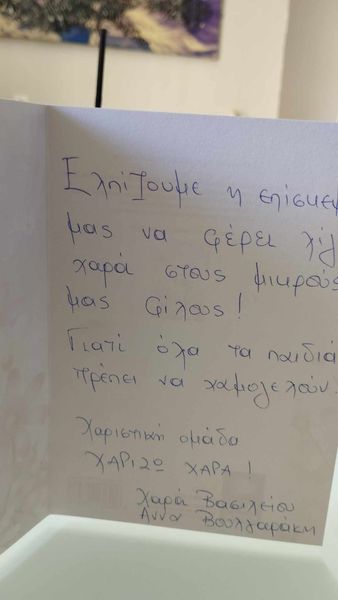 Ελπίζουμε η επίσκεψ
μας να φέρει λίγ
χαρά στους μικρούς
μας φίλους!
Γιατί όλα τα παιδιά
πρέπει να χαμογελούν.
Χαριστική ομάδα
ΧΑΡΙΖΩ ΧΑΡΑ!
Χαρά Βασιλείου
Άννα Βουλγαράκη